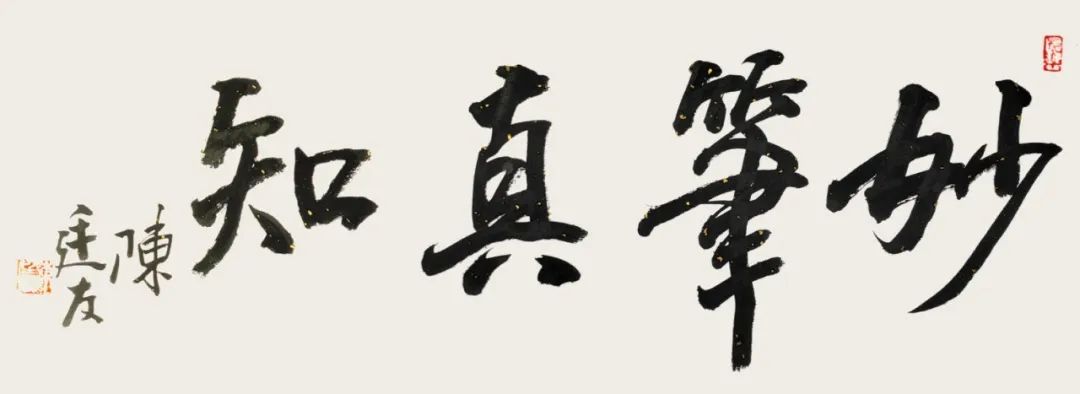 妙筆真知
陳
廷友